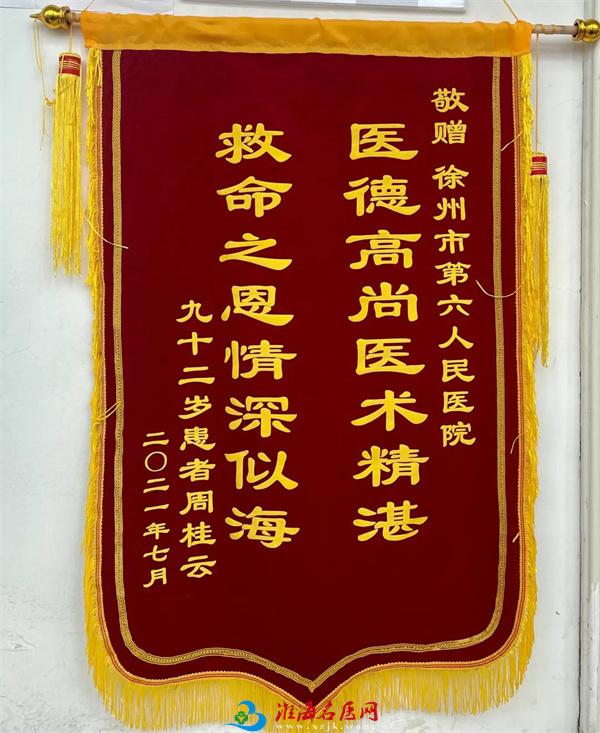 敬赠 徐州市第六人民医院
医德高尚医术精湛
救命之恩情深似海
九十二岁患者周桂云
二〇二一年七月
淮海名医网
www.xzjk.wang